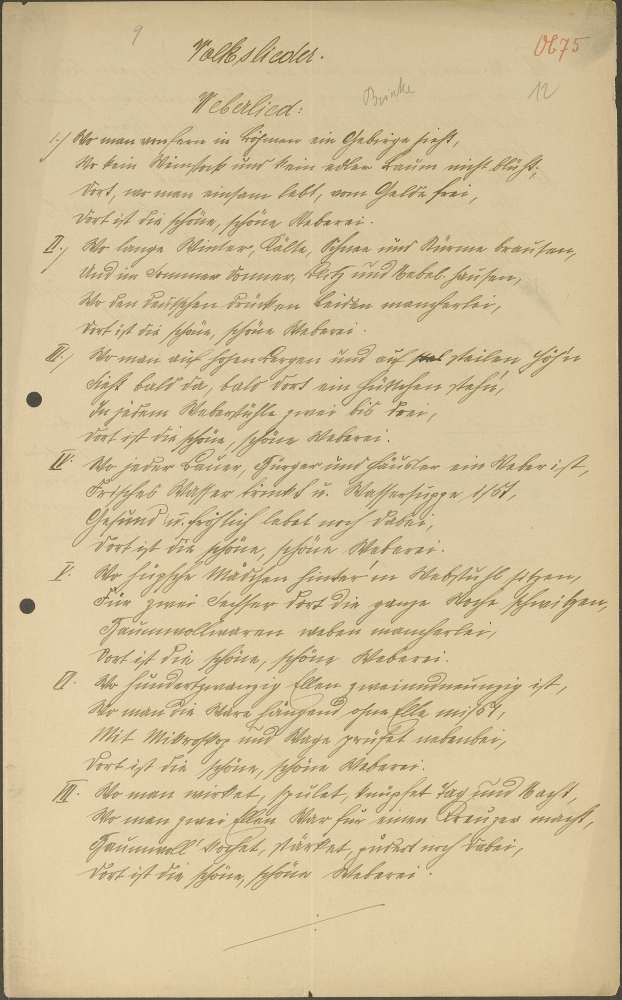 9
Volkslieder.
Ob75
Weberlied:
12
1.) Wo man von fern in Böhmen ein Gebirge sieht,
Wo kein Weinstock und kein edler Baum nicht blüht,
Dort, wo man einsam lebt, vom Gelde frei,
Dort ist die schöne, schöne Weberei.
II.) Wo lange Winter, Kälte, Schnee und Stürme brausen,
Und im Sommer Donner, Blitz und Nebel hausen,
Wo den Deutschen drücken Leiden mancherlei,
Dort ist die schöne, schöne Weberei.
III.) Wo man auf hohen Bergen und auf steilen Höh'n
Sieht bald da, bald dort ein Hüttchen stehn,
In jedem Webstühle zwei bis drei,
Dort ist die schöne, schöne Weberei.
IV. Wo jeder Bauer, Bürger und Häusler ein Weber ist,
Frisches Wasser trinkt u. Wassersuppe ißt,
Gesund u. fröhlich lebet noch dabei,
Dort ist die schöne, schöne Weberei.
V. Wo hübsche Mädchen hinter'm Webstuhl sitzen,
Für zwei Sechser dort die ganze Woche schwitzen,
Baumwollwaren weben mancherlei,
Dort ist die schöne, schöne Weberei.
VI. Wo hundertzwanzig Ellen zweiundneunzig ist,
Wo man die Ware hängend ohne Elle mißt,
Mit Mikroskop und Wage prüfet nebenbei,
Dort ist die schöne, schöne Weberei.
VII. Wo man wirket, spulet, knüpfet Tag und Nacht,
Wo man zwei Ellen War für einen Kreuzer macht,
Baumwoll' kochet, stärket, pudert noch dabei,
Dort ist die schöne, schöne Weberei.